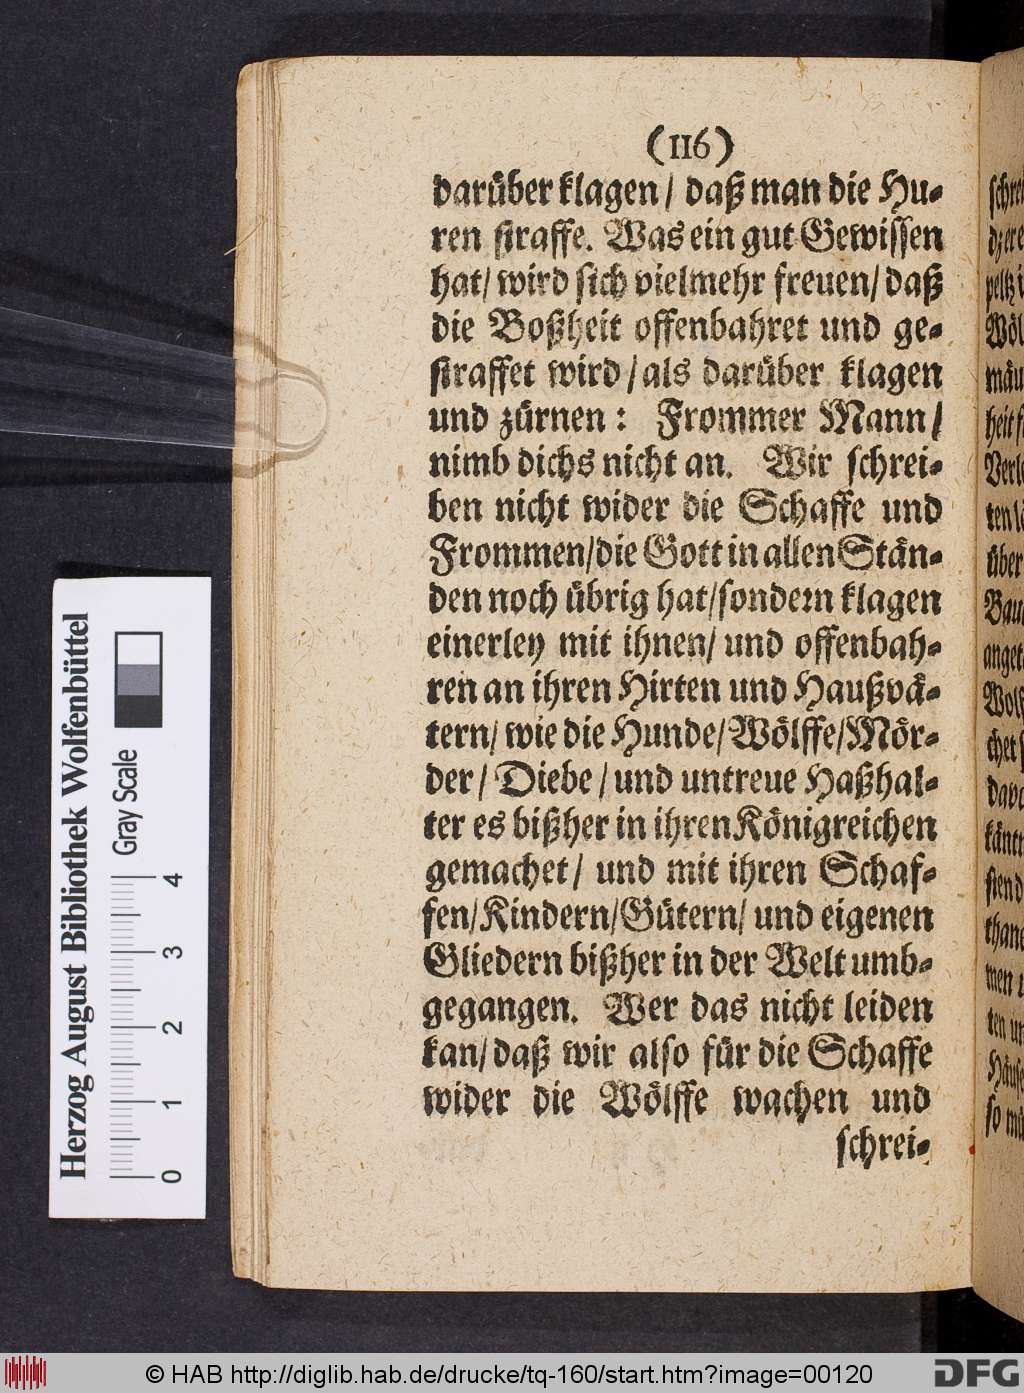 (116)
darüber klagen/ daß man die Hu-
ren straffe. Was ein gut Gewissen
hat/ wird sich vielmehr freuen/ daß
die Boßheit offenbahret und ge-
straffet wird/ als darüber klagen
und zürnen: Frommer Mann/
nimb dichs nicht an. Wir schrei-
ben nicht wider die Schaffe und
Frommen/ die Gott in allen Stän-
den noch übrig hat/ sondern klagen
einerley mit ihnen/ und offenbah-
ren an ihren Hirten und Haußvä-
tern/ wie die Hunde/ Wölffe/ Mör-
der/ Diebe/ und untreue Haßhal-
ter es bißher in ihren Königreichen
gemachet/ und mit ihren Schaf-
fen/ Kindern/ Gütern/ und eigenen
Gliedern bißher in der Welt umb-
gegangen. Wer das nicht leiden
kan/ daß wir also für die Schaffe
wider die Wölffe wachen und
schrei-
Herzog August Bibliothek Wolfenbüttel
Gray Scale
0 1 2 3 4
© HAB http://diglib.hab.de/drucke/tq-160/start.htm?image=00120
DFG